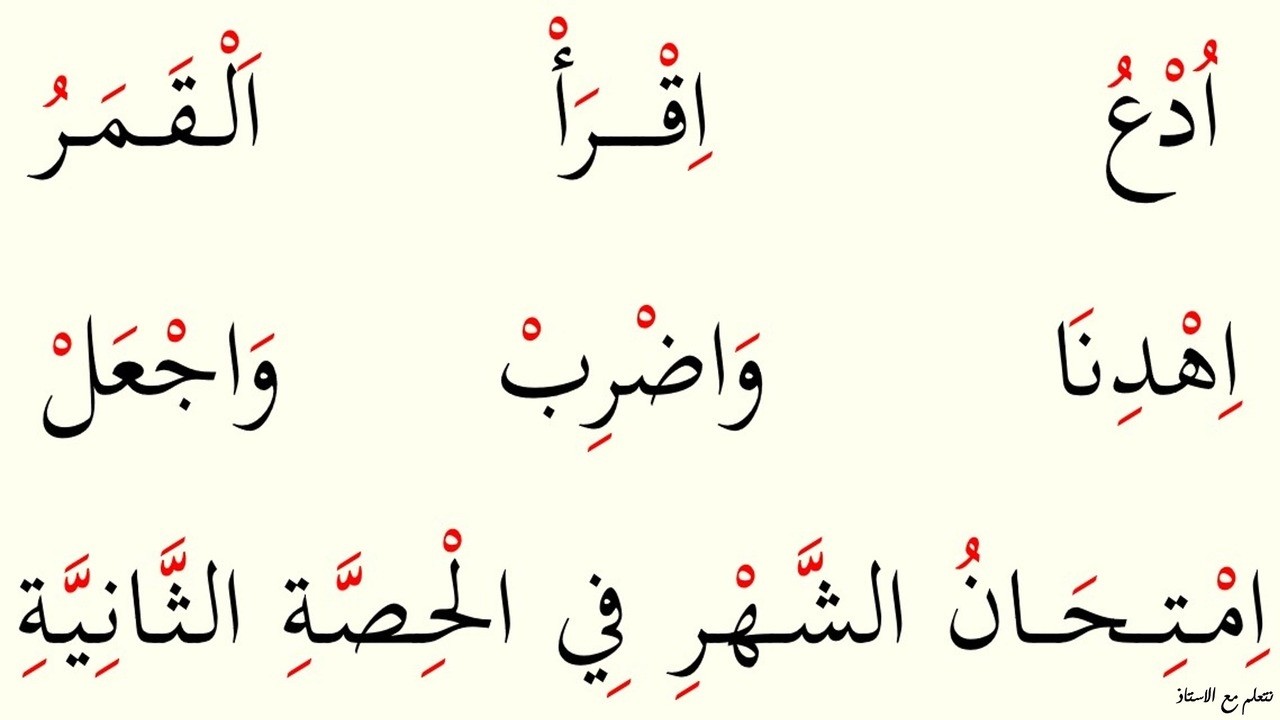 اُدْعُ اِقْرَأْ اَلْقَمَرُ
اِهْدِنَا وَاضْرِبْ وَاجْعَلْ
اِمْتِحَانُ الشَّهْرِ فِي الْحِصَّةِ الثَّانِيَّةِ
نتعلم مع الاستاذ